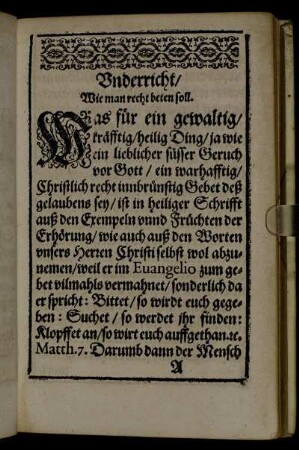 Vnderricht/
Wie man recht beten soll.
WAs für ein gewaltig/
kräfftig/heilig Ding/ja wie
ein lieblicher süsser Geruch
vor Gott/ein warhafftig/
Christlich recht innbrünstig Gebet deß
gelaubens sey/ist in heiliger Schrifft
auß den Exempeln vnnd Früchten der
Erhörung/wie auch auß den Worten
vnsers Herren Christi selbst wol abzu-
nemen/weil er im Euangelio zum ge-
bet vilmahls vermahnet/sonderlich da
er spricht: Bittet/so wirdt euch gege-
ben: Suchet/so werdet jhr finden:
Klopffet an/so wirt euch auffgethan.ꝛc.
Matth.7. Darumb dann der Mensch
A